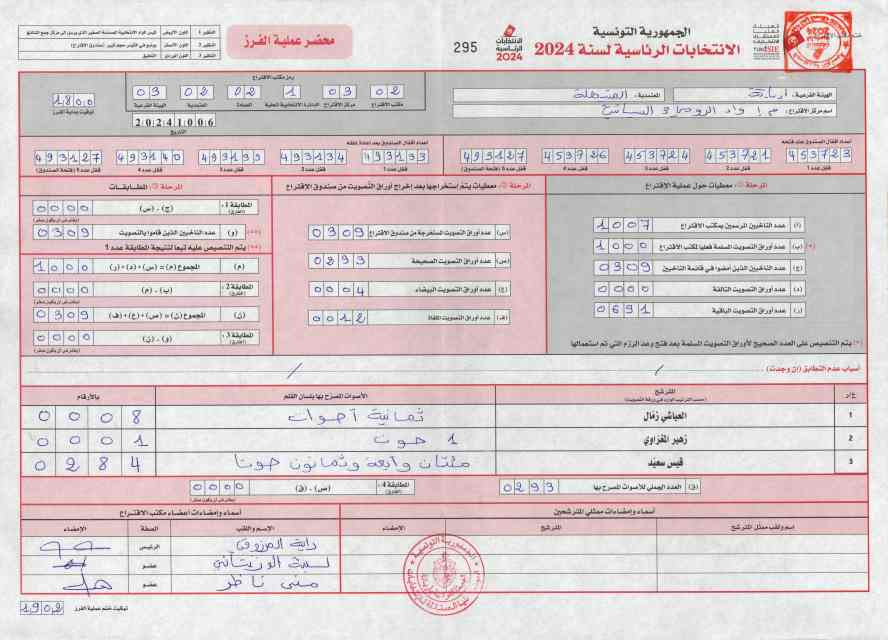 الجمهورية التونسية
الانتخابات الرئاسية لسنة 2024
الانتخابات الرئاسية 2024
295
محضر عملية الفرز
رمز مكتب الاقتراع
03 02 02 1 03 02
الهيئة الفرعية المعتمدية العمادة الدائرة الانتخابية المحلية مركز الاقتراع مكتب الاقتراع
1800
توقيت بداية الفرز
20241006
التاريخ
الهيئة الفرعية: أريانة
المعتمدية:
اسم مركز الاقتراع:
أعداد أقفال الصندوق عند فتحه
453723 453721 453724 453726 493127
قفل عدد 1 قفل عدد 2 قفل عدد 3 قفل عدد 4 قفل عدد 5 (فتحة الصندوق)
أعداد أقفال الصندوق بعد إعادة غلقه
493133 493134 493139 493140 493127
قفل عدد 1 قفل عدد 2 قفل عدد 3 قفل عدد 4 قفل عدد 5 (فتحة الصندوق)
معطيات حول عملية الاقتراع
(أ) عدد الناخبين المرسمين بمكتب الاقتراع 1007
(ب) عدد أوراق التصويت المسلمة فعليا لمكتب الاقتراع 1000
(ج) عدد الناخبين الذين أمضوا في قائمة الناخبين 0309
(د) عدد أوراق التصويت التالفة 0000
(ر) عدد أوراق التصويت الباقية 0691
(*) يتم التنصيص على العدد الصحيح لأوراق التصويت المسلمة بعد فتح وعد الرزم التي تم استعمالها
معطيات يتم استخراجها بعد إخراج أوراق التصويت من صندوق الاقتراع
(س) عدد أوراق التصويت المستخرجة من صندوق الاقتراع 0309
(ص) عدد أوراق التصويت الصحيحة 0293
(ع) عدد أوراق التصويت البيضاء 0004
(ف) عدد أوراق التصويت الملغاة 0012
المطابقات
المطابقة 1 (ج) - (س) 0000
(و) عدد الناخبين الذين قاموا بالتصويت 0309
يتم التنصيص عليه تبعا لنتيجة المطابقة عدد 1
(م) المجموع (م) = (س) + (د) + (ر) 1000
المطابقة 2 (ب) - (م) 0000
(ن) المجموع (ن) = (ص) + (ع) + (ف) 0309
المطابقة 3 (و) - (ن) 0000
أسباب عدم التطابق (إن وجدت)
ع/ر المترشح الأصوات المصرح بها بلسان القلم بالأرقام
(حسب الترتيب الوارد في ورقة التصويت)
1 العياشي زمال ثمانية أصوات 0008
2 زهير المغزاوي 1 صوت 0001
3 قيس سعيد مئتان وأربعة وثمانون صوتا 0284
(ق) العدد الجملي للأصوات المصرح بها 0293
المطابقة 4 (ص) - (ق) 0000
أسماء وإمضاءات ممثلي المترشحين
اسم ولقب ممثل المترشح المترشح الإمضاء
أسماء وإمضاءات أعضاء مكتب الاقتراع
الاسم واللقب الصفة الإمضاء
الرئيس
عضو
منى ناظر عضو
توقيت ختم عملية الفرز 1902